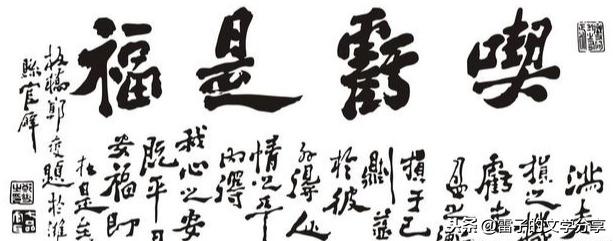 喫虧是福
損之
虧者
盈之
損于己
則益
於彼
外得人
情之平
內得
我心之安
既平且
安福即
在是矣
板橋鄭燮題於濰
縣官廨
头条 @雷子的文学分享